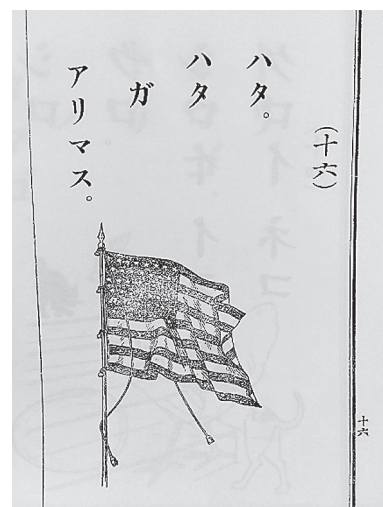 (十六)
ハタ。
ハタ
ガ
アリマス。
十六